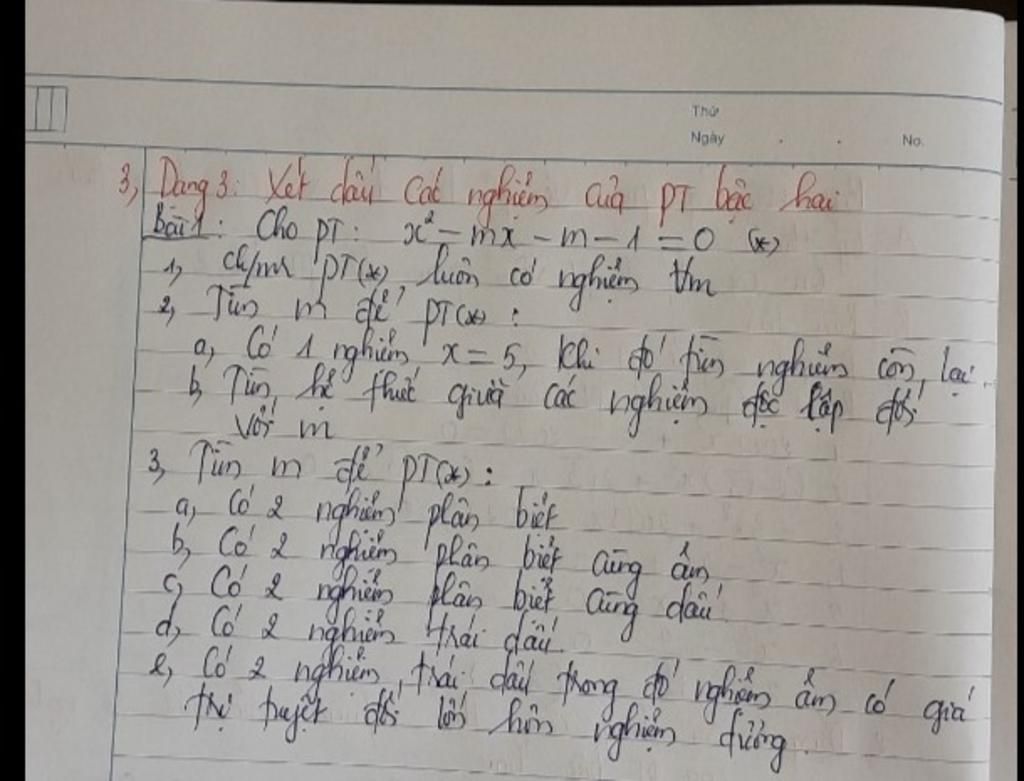 Thứ
Ngày . . No.
3, Dạng 3: Xét dấu các nghiệm của PT bậc hai
Bài 1: Cho PT: x² - mx - m - 1 = 0 (*)
1, c/mr PT(*) luôn có nghiệm ∀m
2, Tìm m để PT(*) :
a, Có 1 nghiệm x = 5, khi đó tìm nghiệm còn lại.
b, Tìm hệ thức giữa các nghiệm độc lập đối
với m
3, Tìm m để PT(*) :
a, Có 2 nghiệm phân biệt
b, Có 2 nghiệm phân biệt cùng âm
c, Có 2 nghiệm phân biệt cùng dấu
d, Có 2 nghiệm trái dấu.
e, Có 2 nghiệm trái dấu trong đó nghiệm âm có giá
trị tuyệt đối lớn hơn nghiệm dương